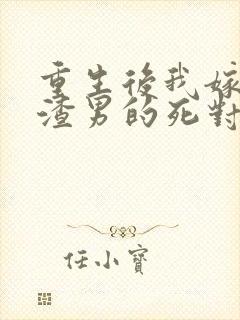 重生後我嫁
渣男的死對
任小寶